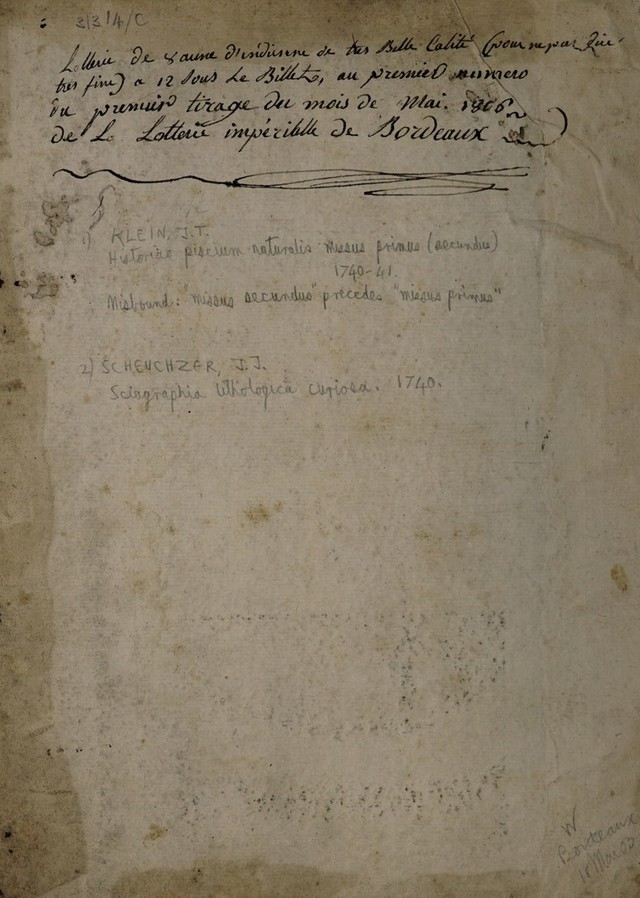 3/3/4/C
Lotterie de 8 aune d'indienne de tres Belle Calité (pour ne pas dire
tres fine) a 12 Sous Le Billets, au premier numero
du premier tirage du mois de Mai. 1806
de La Lotterie impérialle de Bordeaux
1) KLEIN, J.T.
Historiae piscium naturalis missus primus (secundus)
1740-41.
Misbound: "missus secundus" precedes "missus primus"
2) SCHEUCHZER, J.J.
Sciographia lithologica curiosa. 1740.
W
Bordeaux